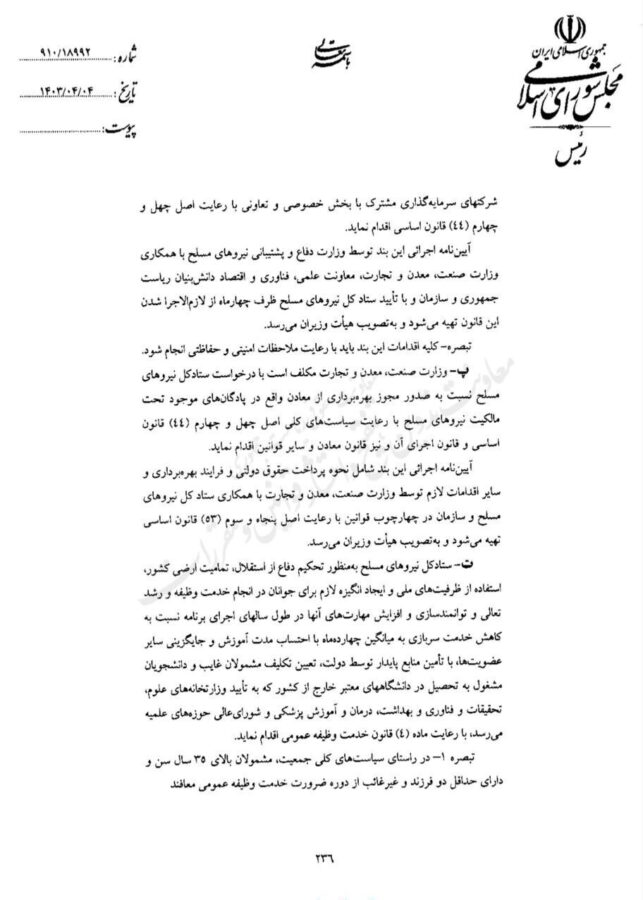 جمهوری اسلامی ایران
مجلس شورای اسلامی
رئیس
باسمه تعالی
شماره: ۹۱۰/۱۸۹۹۲
تاریخ: ۱۴۰۳/۰۴/۰۴
پیوست:
شرکتهای سرمایه‌گذاری مشترک با بخش خصوصی و تعاونی با رعایت اصل چهل و
چهارم (۴۴) قانون اساسی اقدام نماید.
آیین‌نامه اجرائی این بند توسط وزارت دفاع و پشتیبانی نیروهای مسلح با همکاری
وزارت صنعت، معدن و تجارت، معاونت علمی، فناوری و اقتصاد دانش‌بنیان ریاست
جمهوری و سازمان و با تأیید ستاد کل نیروهای مسلح ظرف چهارماه از لازم‌الاجرا شدن
این قانون تهیه می‌شود و به‌تصویب هیأت وزیران می‌رسد.
تبصره– کلیه اقدامات این بند باید با رعایت ملاحظات امنیتی و حفاظتی انجام شود.
پ– وزارت صنعت، معدن و تجارت مکلف است با درخواست ستادکل نیروهای
مسلح نسبت به صدور مجوز بهره‌برداری از معادن واقع در پادگان‌های موجود تحت
مالکیت نیروهای مسلح با رعایت سیاست‌های کلی اصل چهل و چهارم (۴۴) قانون
اساسی و قانون اجرای آن و نیز قانون معادن و سایر قوانین اقدام نماید.
آیین‌نامه اجرائی این بند شامل نحوه پرداخت حقوق دولتی و فرایند بهره‌برداری و
سایر اقدامات لازم توسط وزارت صنعت، معدن و تجارت با همکاری ستاد کل نیروهای
مسلح و سازمان در چهارچوب قوانین با رعایت اصل پنجاه و سوم (۵۳) قانون اساسی
تهیه می‌شود و به‌تصویب هیأت وزیران می‌رسد.
ت– ستادکل نیروهای مسلح به‌منظور تحکیم دفاع از استقلال، تمامیت ارضی کشور،
استفاده از ظرفیت‌های ملی و ایجاد انگیزه لازم برای جوانان در انجام خدمت وظیفه و رشد
تعالی و توانمندسازی و افزایش مهارت‌های آنها در طول سالهای اجرای برنامه نسبت به
کاهش خدمت سربازی به میانگین چهارده‌ماه با احتساب مدت آموزش و جایگزینی سایر
عضویت‌ها، با تأمین منابع پایدار توسط دولت، تعیین تکلیف مشمولان غایب و دانشجویان
مشغول به تحصیل در دانشگاههای معتبر خارج از کشور که به تأیید وزارتخانه‌های علوم،
تحقیقات و فناوری و بهداشت، درمان و آموزش پزشکی و شورای‌عالی حوزه‌های علمیه
می‌رسد، با رعایت ماده (۴) قانون خدمت وظیفه عمومی اقدام نماید.
تبصره ۱– در راستای سیاست‌های کلی جمعیت، مشمولان بالای ۳۵ سال سن و
دارای حداقل دو فرزند و غیرغائب از دوره ضرورت خدمت وظیفه عمومی معافند
۲۳۶